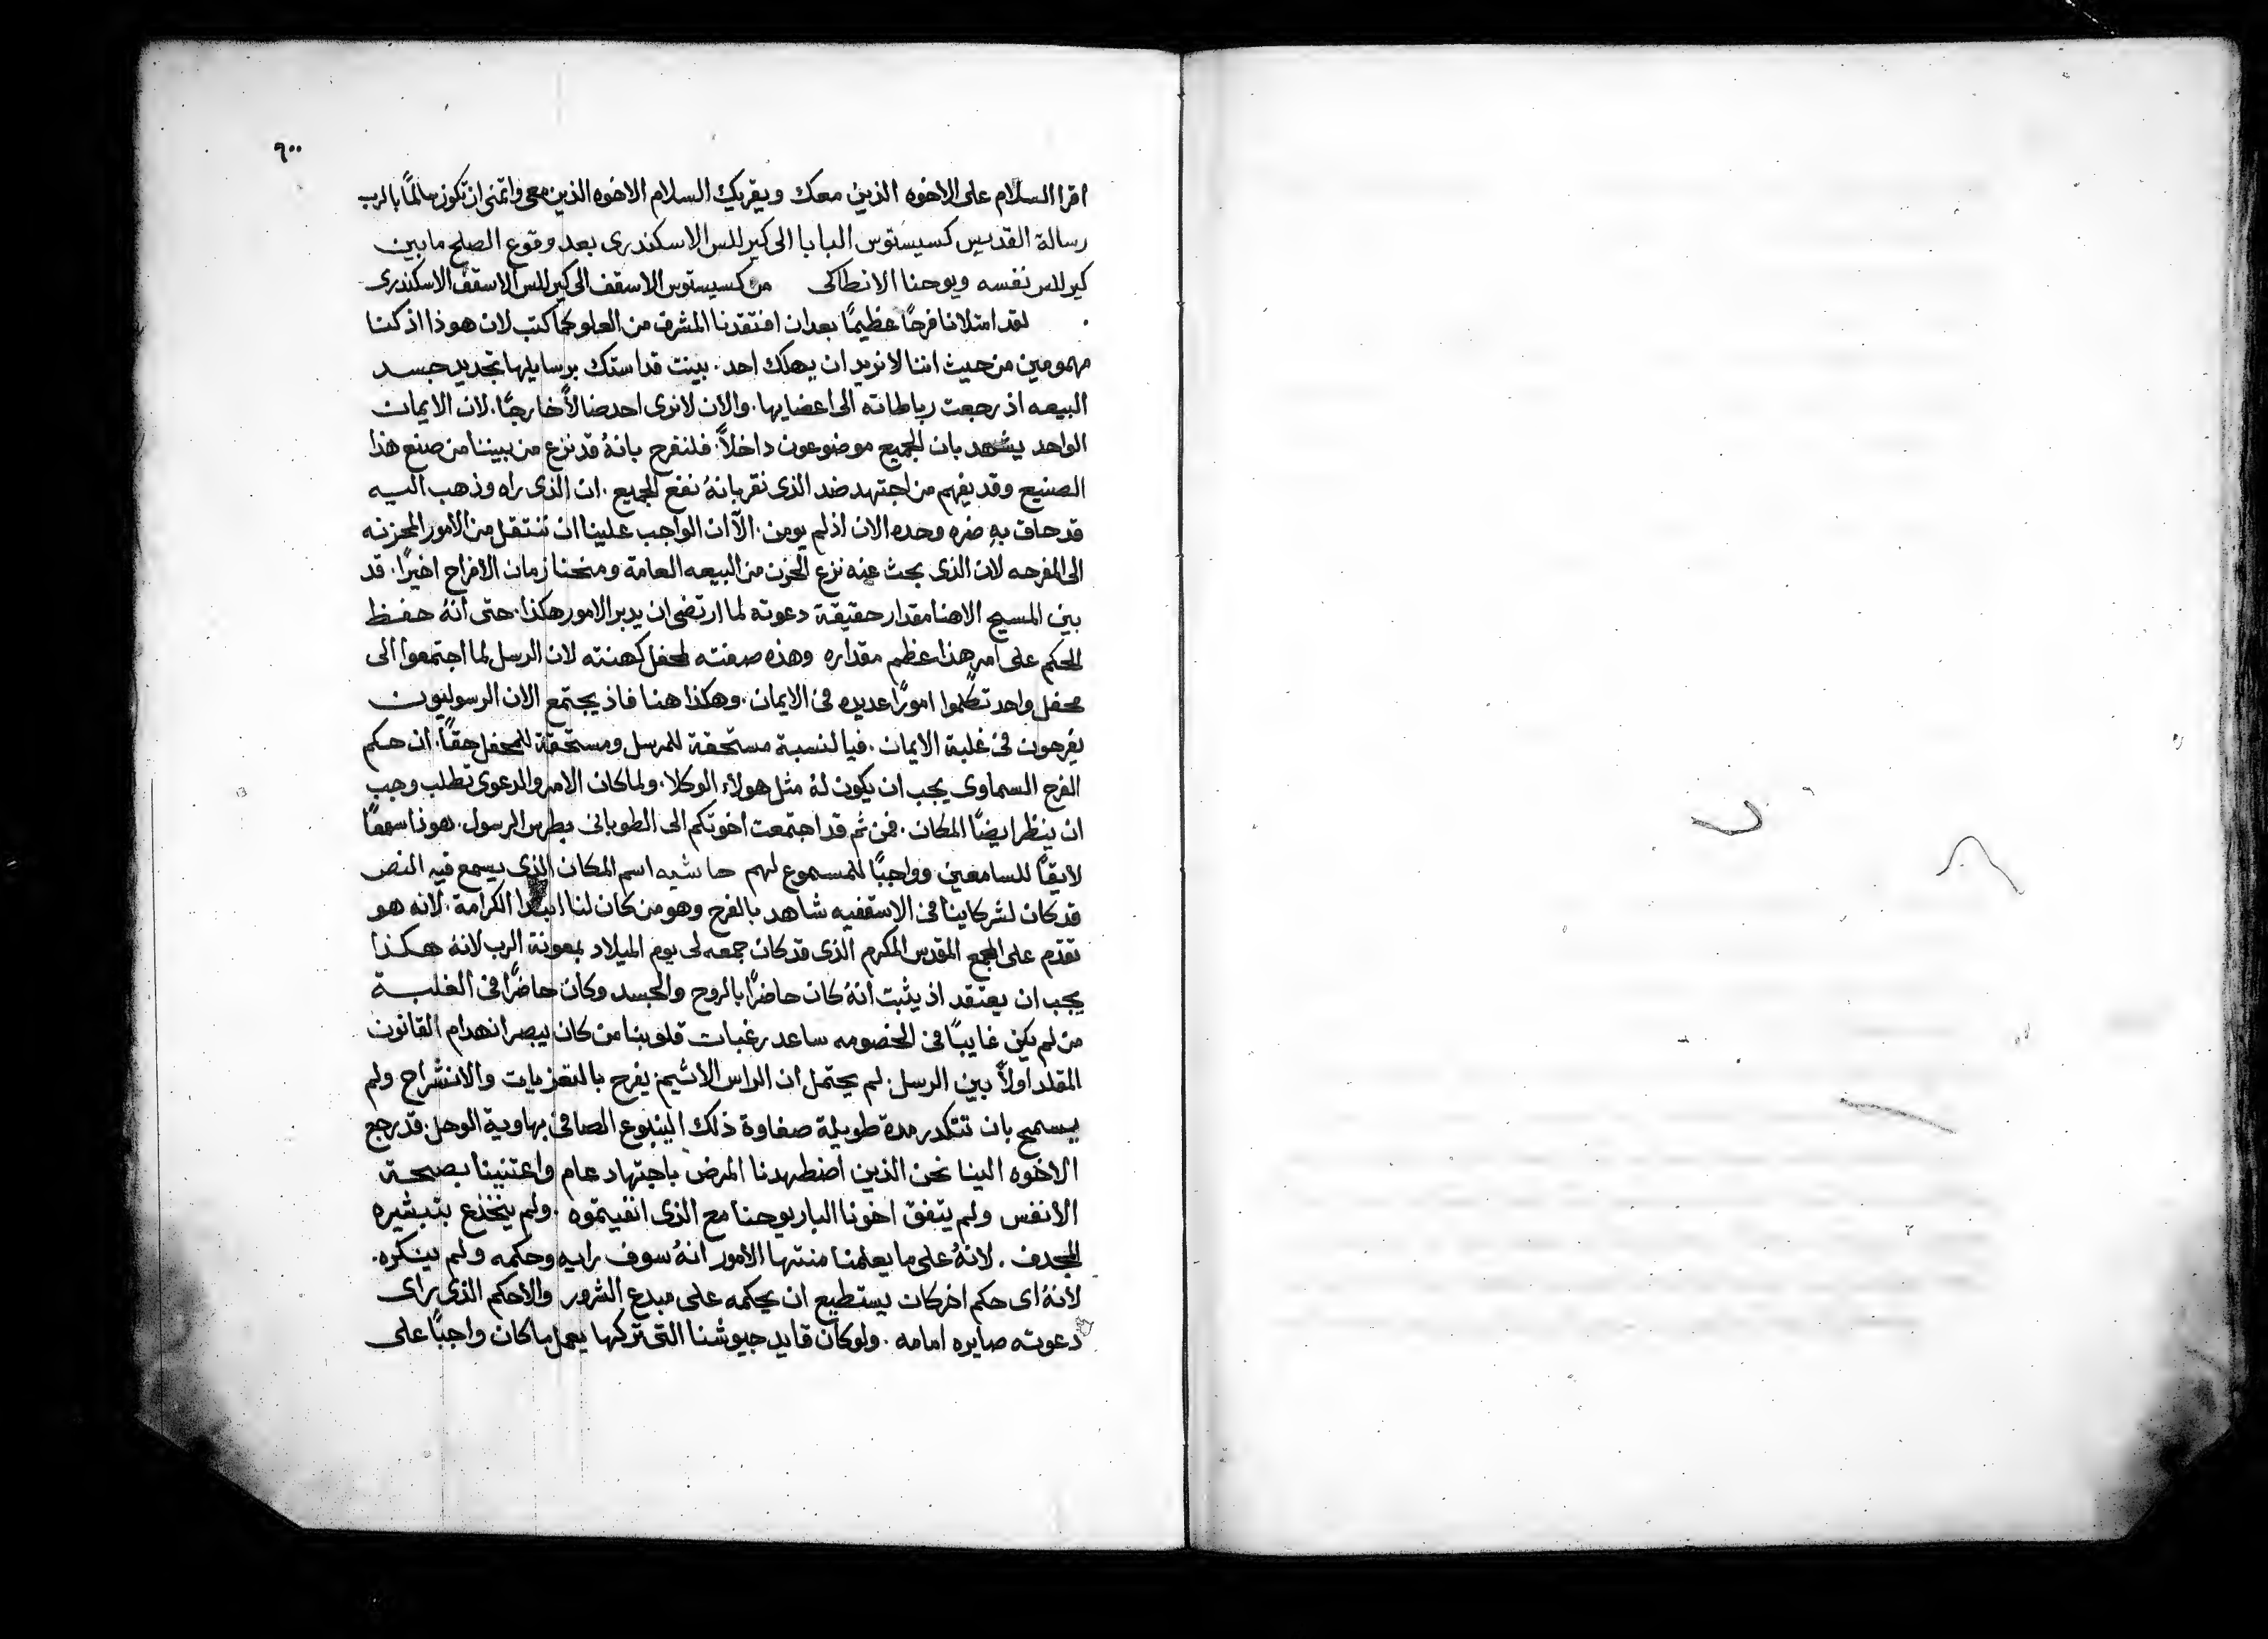 ٩٠٠
اقرا السلام على الاخوه الذين معك ويقريك السلام الاخوه الذين معي واتمنى ان تكون سالمًا بالرب
رسالة القديس كسيستوس البابا الى كيرللس الاسكندرى بعد وقوع الصلح ما بين
كيرللس نفسه ويوحنا الانطاكى من كسيستوس الاسقف الى كيرللس الاسقف الاسكندرى
لقد امتلانا فرحًا عظيمًا بعد ان افتقدنا المشرف من العلو كما كتب لان هوذا اذ كنا
مهمومين من حيث اننا لا نريد ان يهلك احد. بينت قداستك برسايلها تجديد جسد
البيعه اذ رجعت رباطاته الى اعضايها. والان لا نرى احد ضالاً خارجًا. لان الايمان
الواحد يشهد بان الجميع موضوعون داخلاً. فلنفرح بانهُ قد نزع من بيننا من صنع هذا
الصنيع وقد يفهم من اجتهد ضد الذى نقر بانهُ نفع الجميع. ان الذى راه وذهب اليه
قد حاق بهِ ضره وحده الان اذ لم يومن. الاّ ان الواجب علينا ان ننتقل من الامور المحزنه
الى المفرحه لان الذى بحث عنه نزع الحزن من البيعه العامة ومنحنا زمان الافراح اخيرًا. قد
بين المسيح الاهنا مقدار حقيقة دعوته لما ارتضى ان يدبر الامور هكذا. حتى انهُ حفظ
الحكم على امرٍ هذا عظم مقداره وهذه صفته لمحفل كهنته لان الرسل لما اجتمعوا الى
محفل واحد تكلموا امورًا عديده فى الايمان. وهكذا هنا فاذ يجتمع الان الرسوليون
يفرحون فى غلبة الايمان. فيا لنسبة مستحقة للمرسل ومستحقة للمحفل حقًا. ان حكم
الفرح السماوى يجب ان يكون لهُ مثل هولاء الوكلا. ولما كان الامر والدعوى تطلب وجب
ان ينظر ايضًا المكان. فمن ثم قد اجتمعت اخوتكم الى الطوبانى بطرس الرسول. هوذا سمعًا
لايقًا للسامعين وواجبًا للمسموع لهم حاشيه اسم المكان الذى يسمع فيه النص
قد كان لشركاينا فى الاسقفيه شاهد بالفرح وهو من كان لنا ابتدا الكرامة. لانه هو
تقدم على المجمع المقدس المكرم الذى قد كان جمعه لى يوم الميلاد بمعونة الرب لانهُ هكذا
يجب ان يعتقد اذ يثبت انهُ كان حاضرًا بالروح والجسد وكان حاضرًا فى الغلبة
من لم يكن غايبًا فى الخصومه ساعد رغبات قلوبنا من كان يبصر انهدام القانون
المقلد اولاً بين الرسل. لم يحتمل ان الراس الاثيم يفرح بالتعزيات والانشراح ولم
يسمح بان تتكدر مدة طويلة صفاوة ذلك الينبوع الصافى بهاوية الوحل. قد رجع
الاخوه الينا نحن الذين اضطهدنا المرض باجتهاد عام واعتنينا بصحة
الانفس ولم يتفق اخونا البار يوحنا مع الذى انفيتموه. ولم ينخذع بتبشيره
المجدف. لانهُ على ما يعلمنا منتها الامور انهُ سوف رايه وحكمه ولم ينكره.
لانهُ اى حكم اخر كان يستطيع ان يحكمه على مبدع الشرور والاحكم الذى راى
دعوته صايره امامه. ولو كان قايد جيوشنا التى تركها يعمل ما كان واجبًا على